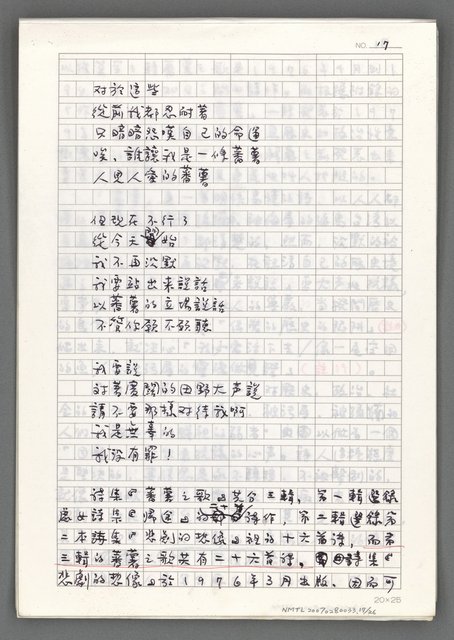 NO. 17
對於這些
從前我都忍耐著
只暗暗怨嘆自己的命運
唉、誰讓我是一條蕃薯
人見人愛的蕃薯
但現在不行了
從今天開始
我不再沈默
我要站出來說話
以蕃薯的立場說話
不管你願不願聽
我要說
對著廣闊的田野大声說
請不要那樣對待我啊
我是無辜的
我沒有罪！
詩集『蕃薯之歌』共分三輯，第一輯選錄
處女詩集『 』的 詩作，第二輯選錄第
二本詩集『悲劇的想像』裡的十六首詩，而第
三輯的蕃薯之歌共有二十六首詩。詩集『
悲劇的想像』於1976年3月出版，因而可
20×25
NMTL20070280033,17/26